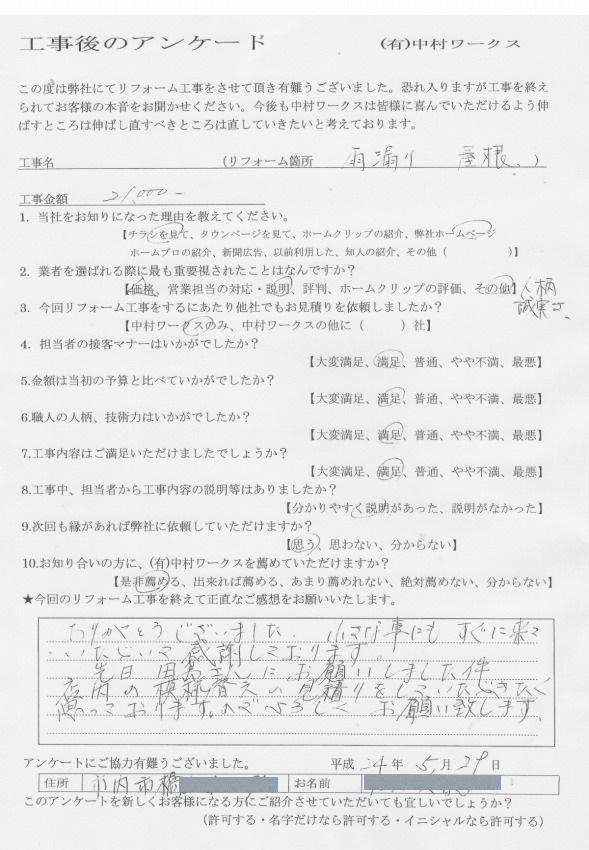 工事後のアンケート (有)中村ワークス
この度は弊社にてリフォーム工事をさせて頂き有難うございました。恐れ入りますが工事を終え
られてお客様の本音をお聞かせください。今後も中村ワークスは皆様に喜んでいただけるよう伸
ばすところは伸ばし直すべきところは直していきたいと考えております。
工事名 (リフォーム箇所 雨漏り 屋根、)
工事金額 21,000-
1. 当社をお知りになった理由を教えてください。
【チラシを見て、タウンページを見て、ホームクリップの紹介、弊社ホームページ
ホームプロの紹介、新聞広告、以前利用した、知人の紹介、その他( )】
2. 業者を選ばれる際に最も重要視されたことはなんですか?
【価格、営業担当の対応・説明、評判、ホームクリップの評価、その他】人柄
誠実さ、
3. 今回リフォーム工事をするにあたり他社でもお見積りを依頼しましたか?
【中村ワークスのみ、中村ワークスの他に( )社】
4. 担当者の接客マナーはいかがでしたか?
【大変満足、満足、普通、やや不満、最悪】
5.金額は当初の予算と比べていかがでしたか?
【大変満足、満足、普通、やや不満、最悪】
6.職人の人柄、技術力はいかがでしたか?
【大変満足、満足、普通、やや不満、最悪】
7.工事内容はご満足いただけましたでしょうか?
【大変満足、満足、普通、やや不満、最悪】
8.工事中、担当者から工事内容の説明等はありましたか?
【分かりやすく説明があった、説明がなかった】
9.次回も縁があれば弊社に依頼していただけますか?
【思う、思わない、分からない】
10.お知り合いの方に、(有)中村ワークスを薦めていただけますか?
【是非薦める、出来れば薦める、あまり薦めれない、絶対薦めない、分からない】
★今回のリフォーム工事を終えて正直なご感想をお願いいたします。
ありがとうございました. 小さな事にもすぐに来て
いただいて感謝しております。
先日 さんにお願いしました件
店内の模様替えの見積りをしていただきたく
思っております。のでよろしくお願い致します。
アンケートにご協力有難うございました。 平成 24年 5月 29日
住所 市内市橋 お名前
このアンケートを新しくお客様になる方にご紹介させていただいても宜しいでしょうか?
(許可する・名字だけなら許可する・イニシャルなら許可する)